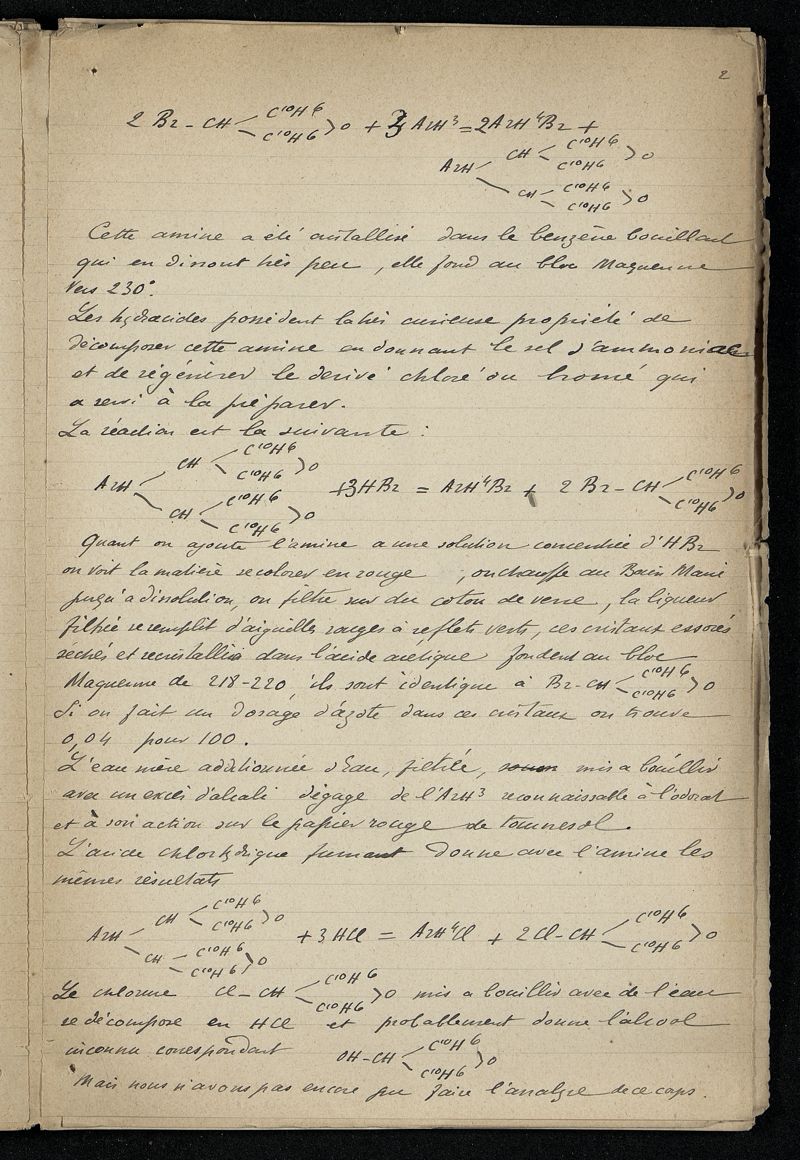 2
2 Br – CH < C10H6 C10H6 > O + 3 AzH3 = 2AzH4Br +
AzH < CH < C10H6 C10H6 > O
CH < C10H6 C10H6 > O
Cette amine a été cristallisé dans le benzène bouillant
qui en dissout très peu, elle fond au bloc Maquenne
vers 230°.
Les hydracides possèdent la très curieuse propriété de
décomposer cette amine en donnant le sel d'ammoniac
et de régénérer le dérivé chloré ou bromé qui
a servi à la préparer.
La réaction est la suivante :
AzH < CH < C10H6 C10H6 > O CH < C10H6 C10H6 > O +3HBr = AzH4Br + 2 Br – CH < C10H6 C10H6 > O
Quant on ajoute l'amine a une solution concentrée d'HBr
on voit la matière se colorer en rouge , on chauffe au Bain Marie
jusqu'a dissolution, on filtre sur du coton de verre, la liqueur
filtrée se remplit d'aiguilles rouges à reflets verts, ces cristaux essorés
séchés et recristallisés dans l'acide acétique fondent au bloc
Maquenne de 218-220, ils sont identique à Br – CH < C10H6 C10H6 > O
Si on fait un dosage d'azote dans ces cristaux on trouve
0,04 pour 100.
L'eau mère additionnée d'Eau, filtrée, mis a bouillir
avec un excès d'alcali dégage de l'AzH3 reconnaissable à l'odorat
et à son action sur le papier rouge de tournesol.
L'acide chlorhydrique fumant donne avec l'amine les
mêmes résultats
AzH < CH < C10H6 C10H6 > O CH < C10H6 C10H6 > O + 3 HCl = AzH4Cl + 2Cl – CH < C10H6 C10H6 > O
Le chlorure Cl – CH < C10H6 C10H6 > O mis a bouillir avec de l'eau
se décompose en HCl et probablement donne l'alcool
inconnu correspondant OH – CH < C10H6 C10H6 > O
Mais nous n'avons pas encore pu faire l'analyse de ce corps.